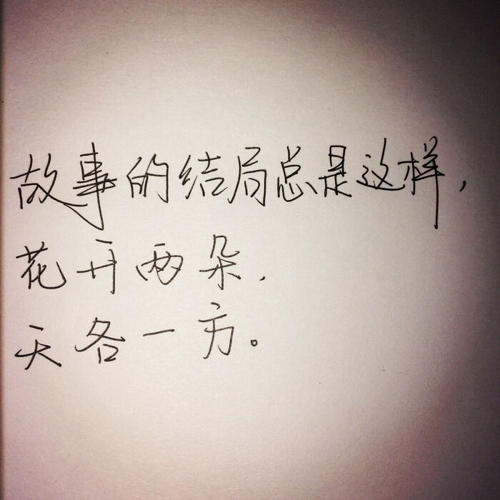 故事的结局总是这样，
花开两朵，
天各一方。